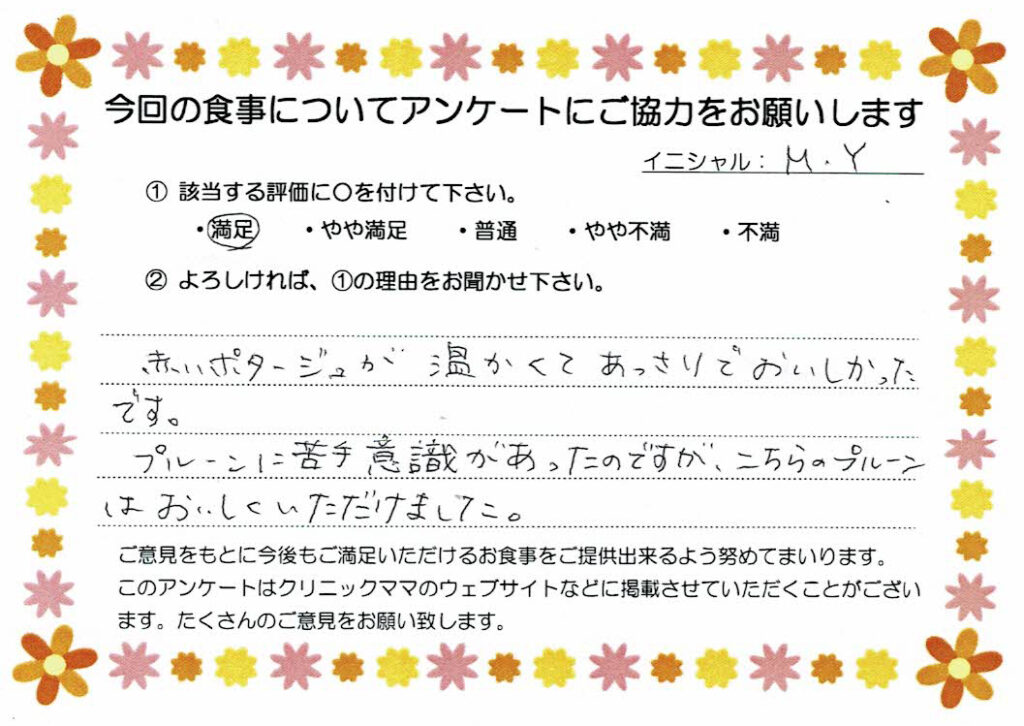 今回の食事についてアンケートにご協力をお願いします
イニシャル： M.Y
① 該当する評価に○を付けて下さい。
・満足 ・やや満足 ・普通 ・やや不満 ・不満
② よろしければ、①の理由をお聞かせ下さい。
赤いポタージュが 温かくて あっさりでおいしかった
です。
プルーンに苦手意識があったのですが、こちらのプルーン
は おいしくいただけました。
ご意見をもとに今後もご満足いただけるお食事をご提供出来るよう努めてまいります。
このアンケートはクリニックママのウェブサイトなどに掲載させていただくことがござい
ます。たくさんのご意見をお願い致します。